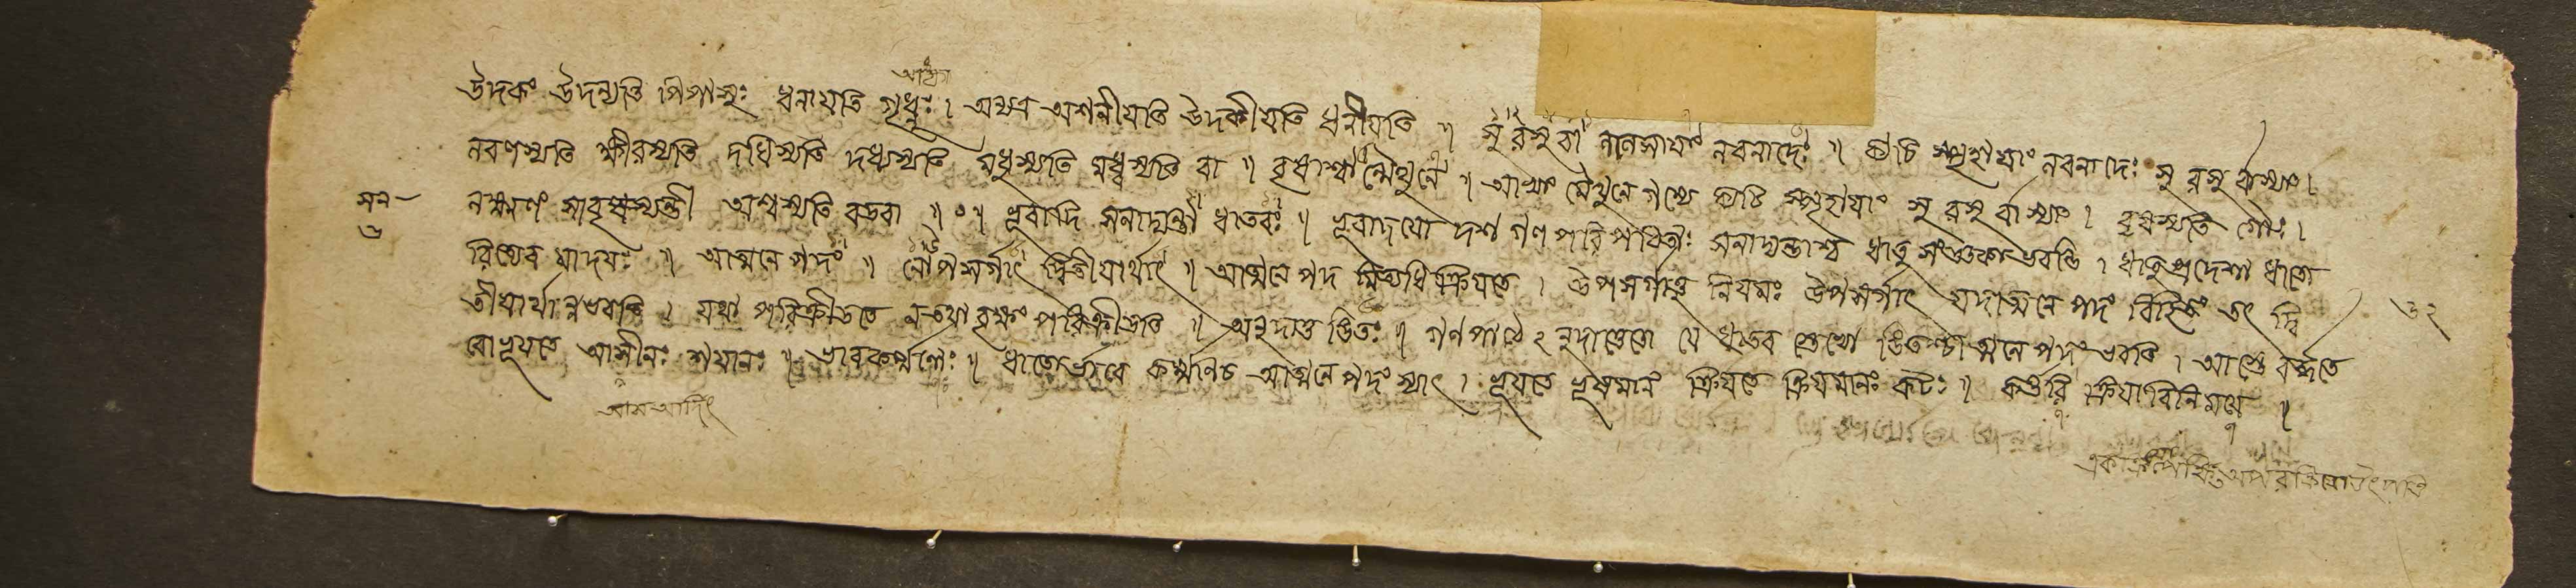 আকাঙ্ক্ষা
উদকং উদন্যতি পিপাসুঃ ধনায়তি গৃধ্নুঃ। অন্যত্র অশনীয়তি উদকীয়তি ধনীয়তি ॥ সুরসুবা লালসায়াং লবনাদেঃ ॥ ক্যচি স্পৃহায়াং লবনাদেঃ সুরসুর্বাস্যাৎ।
লবণস্যতি ক্ষীরস্যতি দধিস্যতি দধ্যস্যতি মধুস্যতি মধ্বস্যতি বা ॥ বৃষাশ্বান্মৈথুনে ॥ আভ্যাং মৈথুনে গম্যে ক্যচি স্পৃহায়াং সুরসুর্বাস্যাৎ। বৃষস্যতি গৌঃ।
সন — লক্ষ্মণং সাবৃষস্যন্তী অশ্বস্যতি বডবা ॥ ০ ॥ ভূবাদি সনাদ্যন্তা ধাতবঃ ॥ ভূবাদয়ো দশ গণ পরিপঠিতাঃ সনাদ্যন্তাশ্চ ধাতু সংজ্ঞকা ভবন্তি। ধাতুপ্রদেশা ধাতো
৩ রিত্যেব মাদয়ঃ ॥ আত্মনে পদং ॥ নোপসর্গাৎ দ্বিতীয়ার্থাৎ ॥ আত্মনে পদ মিত্যধিক্রিয়তে। উপসর্গাত্তু নিয়মঃ উপসর্গাৎ যদাত্মনে পদং বিহিতং তৎ দ্বি ৩২
তীয়ার্থান্নভবতি। যথা পরিক্রীডতে নতথা বৃক্ষং পরিক্রীডতি ॥ অনুদাত্ত ঙিতঃ ॥ গণপাঠে ঽনুদাত্তেতো যে ধাতব স্তেভ্যো ঙিতশ্চাত্মনে পদং ভবতি। আস্তে বর্দ্ধতে
বোভূয়তে আসীনঃ শয়ানঃ ॥ ভাবকর্ম্মণোঃ ॥ ধাতোর্ভাবে কর্ম্মনিচ আত্মনে পদং স্যাৎ। ভূয়তে ভূয়মানং ক্রিয়তে ক্রিয়মানঃ কটঃ ॥ কর্ত্তরি ক্রিয়াবিনিময়ে ॥
আস আদিৎ